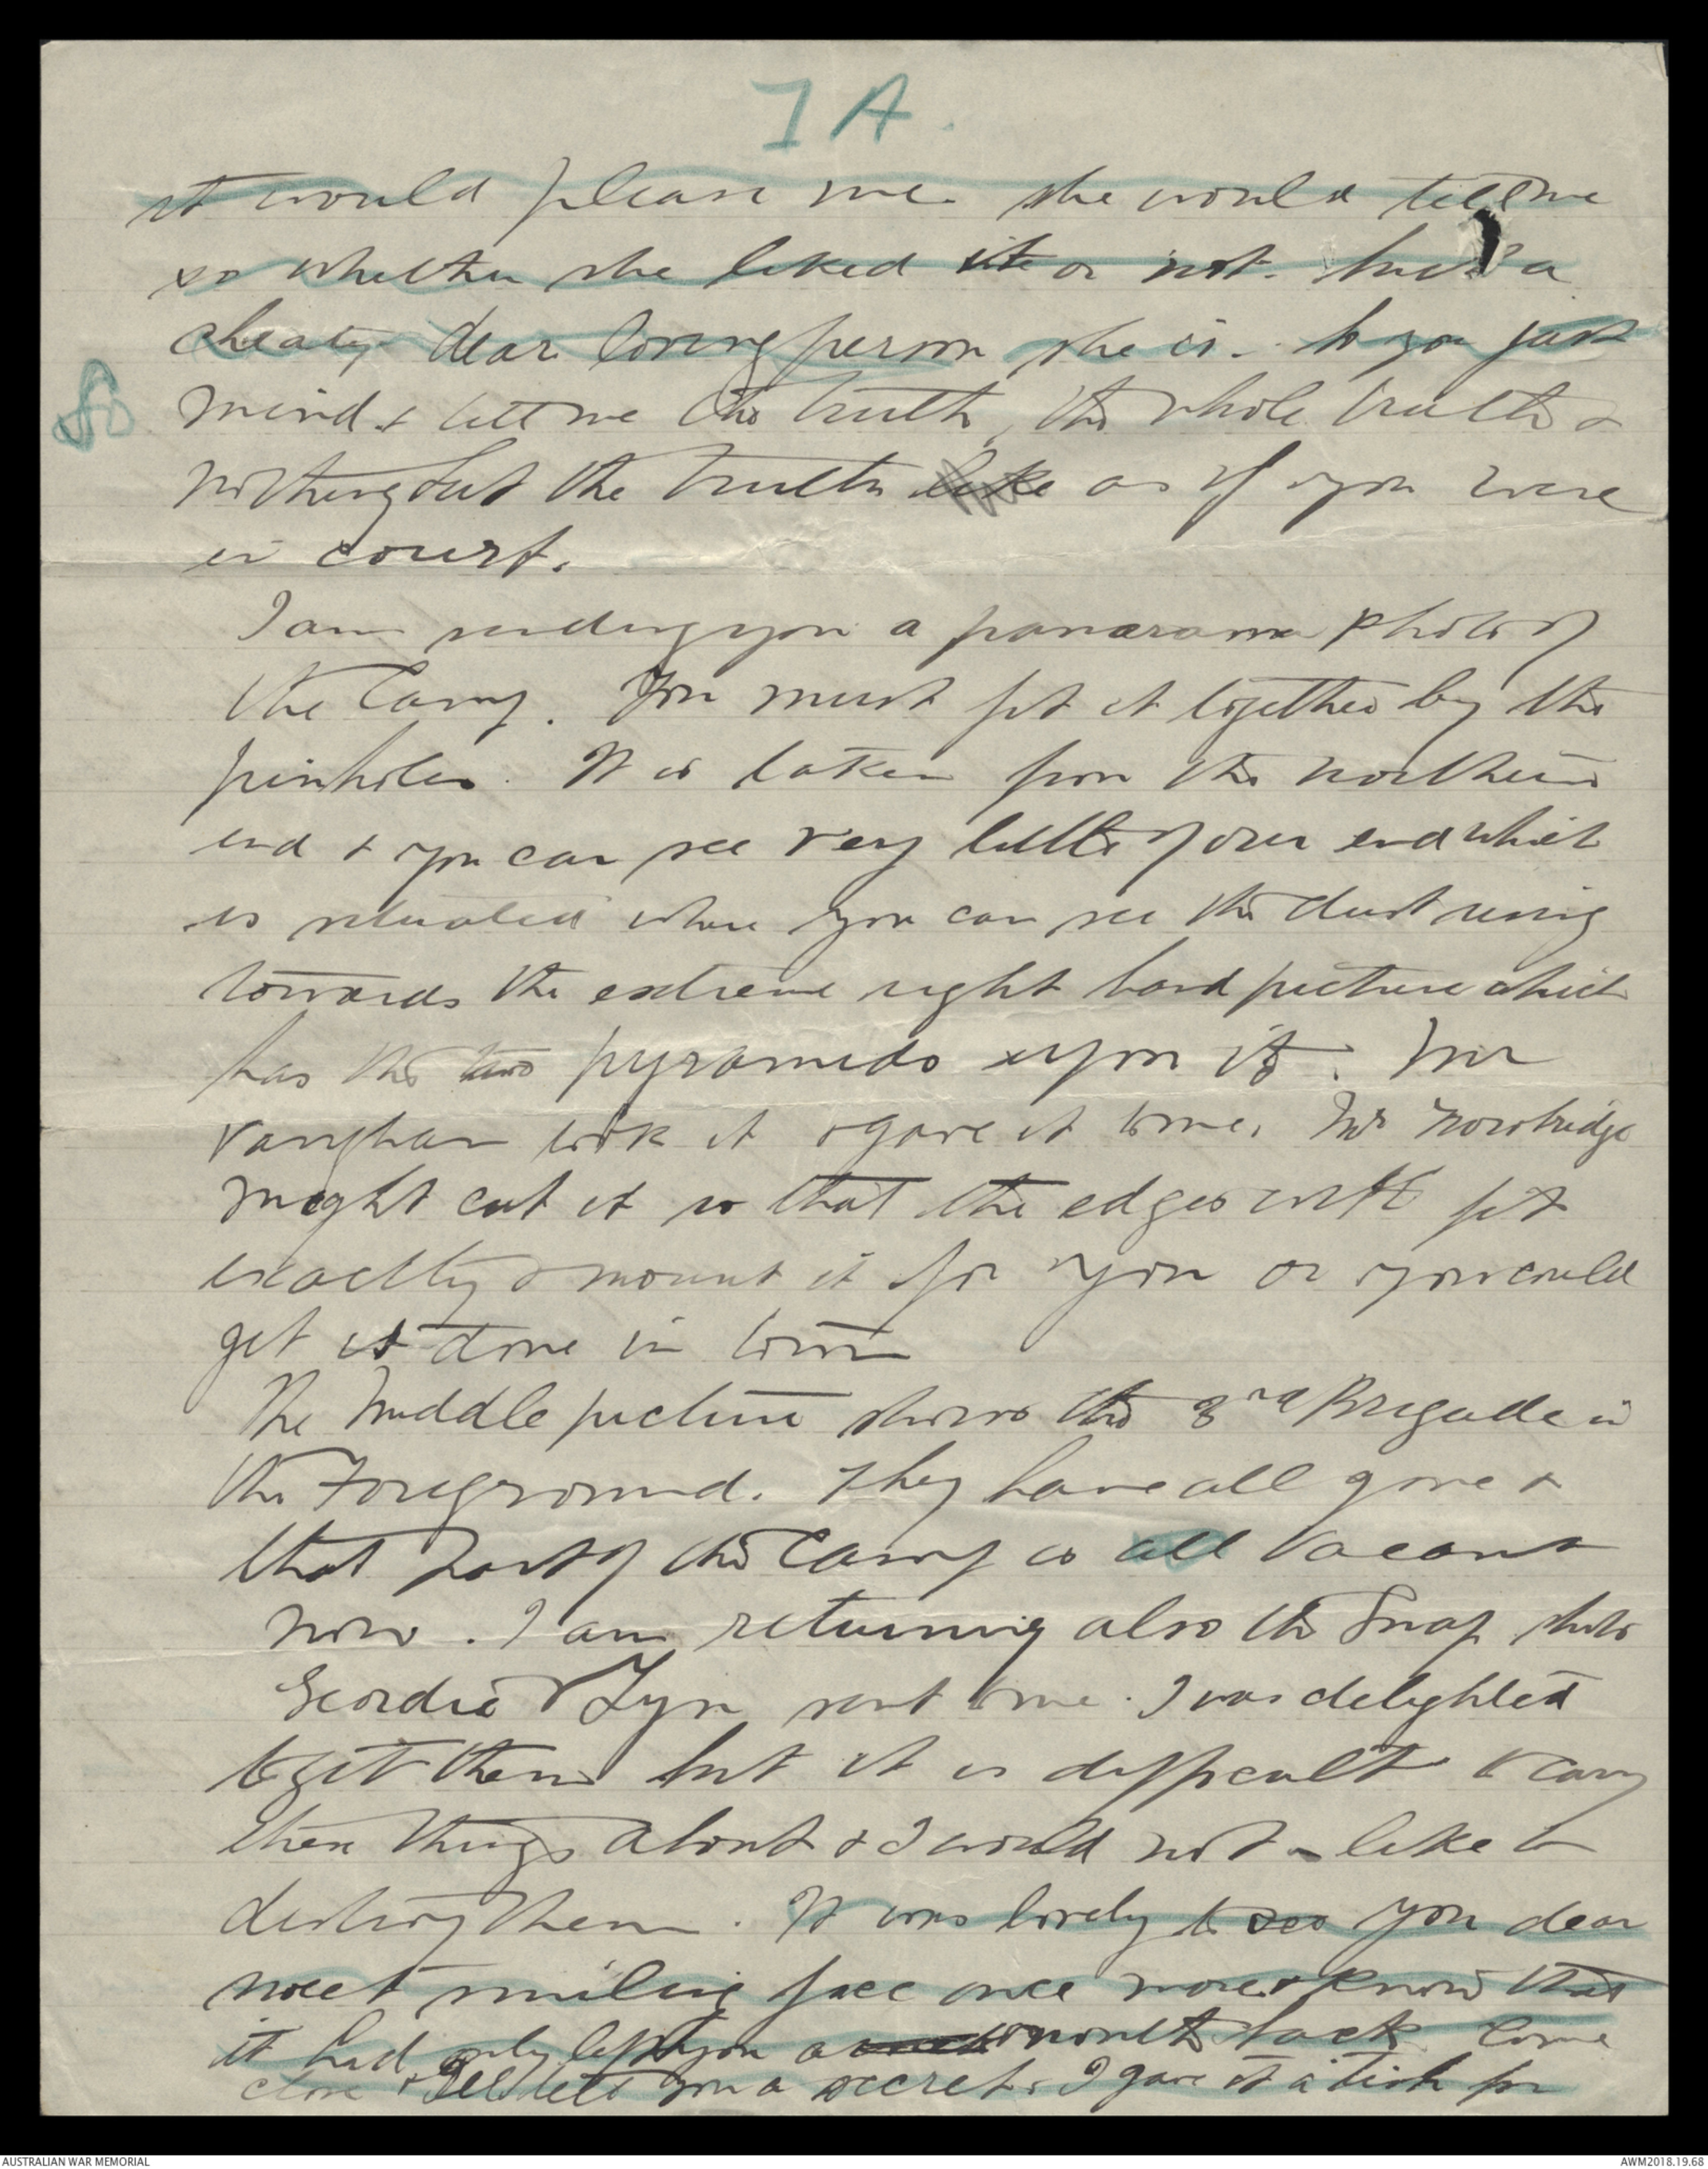 7A.
it would please me. She would tell me
so whether she liked it or not. Such a
cheaty dear loving person she is. So you just
So
mind & tell me the truth, the whole truth &
nothing but the truth like as if you were
in court.
I am sending you a panarama photo of
the Camp. You must fit it together by the
pinholes. It is taken from the northern
end & you can see very little of our end which
is situated where you can see the dust rising
towards the extreme right hand picture which
has the two pyramids upon it. Mr
Vaughan took it & gave it to me. Mr Trowbridge
might cut it so that the edges will fit
exactly & mount it for you or you could
get it done in town
The Middle picture shows the 3rd Brigade in
the Foreground. They have all gone &
that part of the Camp is all vacant
now. I am returning also the Snap shots
Geordie & Lyn sent to me. I was delighted
to get them but it is difficult to carry
these things about & I would not like to
destroy them. It was lovely to see you dear
sweet smiling face once more & know that
it had only left you a month back Come
close & I'll tell you a secret. I gave it a for
AUSTRALIAN WAR MEMORIAL
AWM2018.19.68